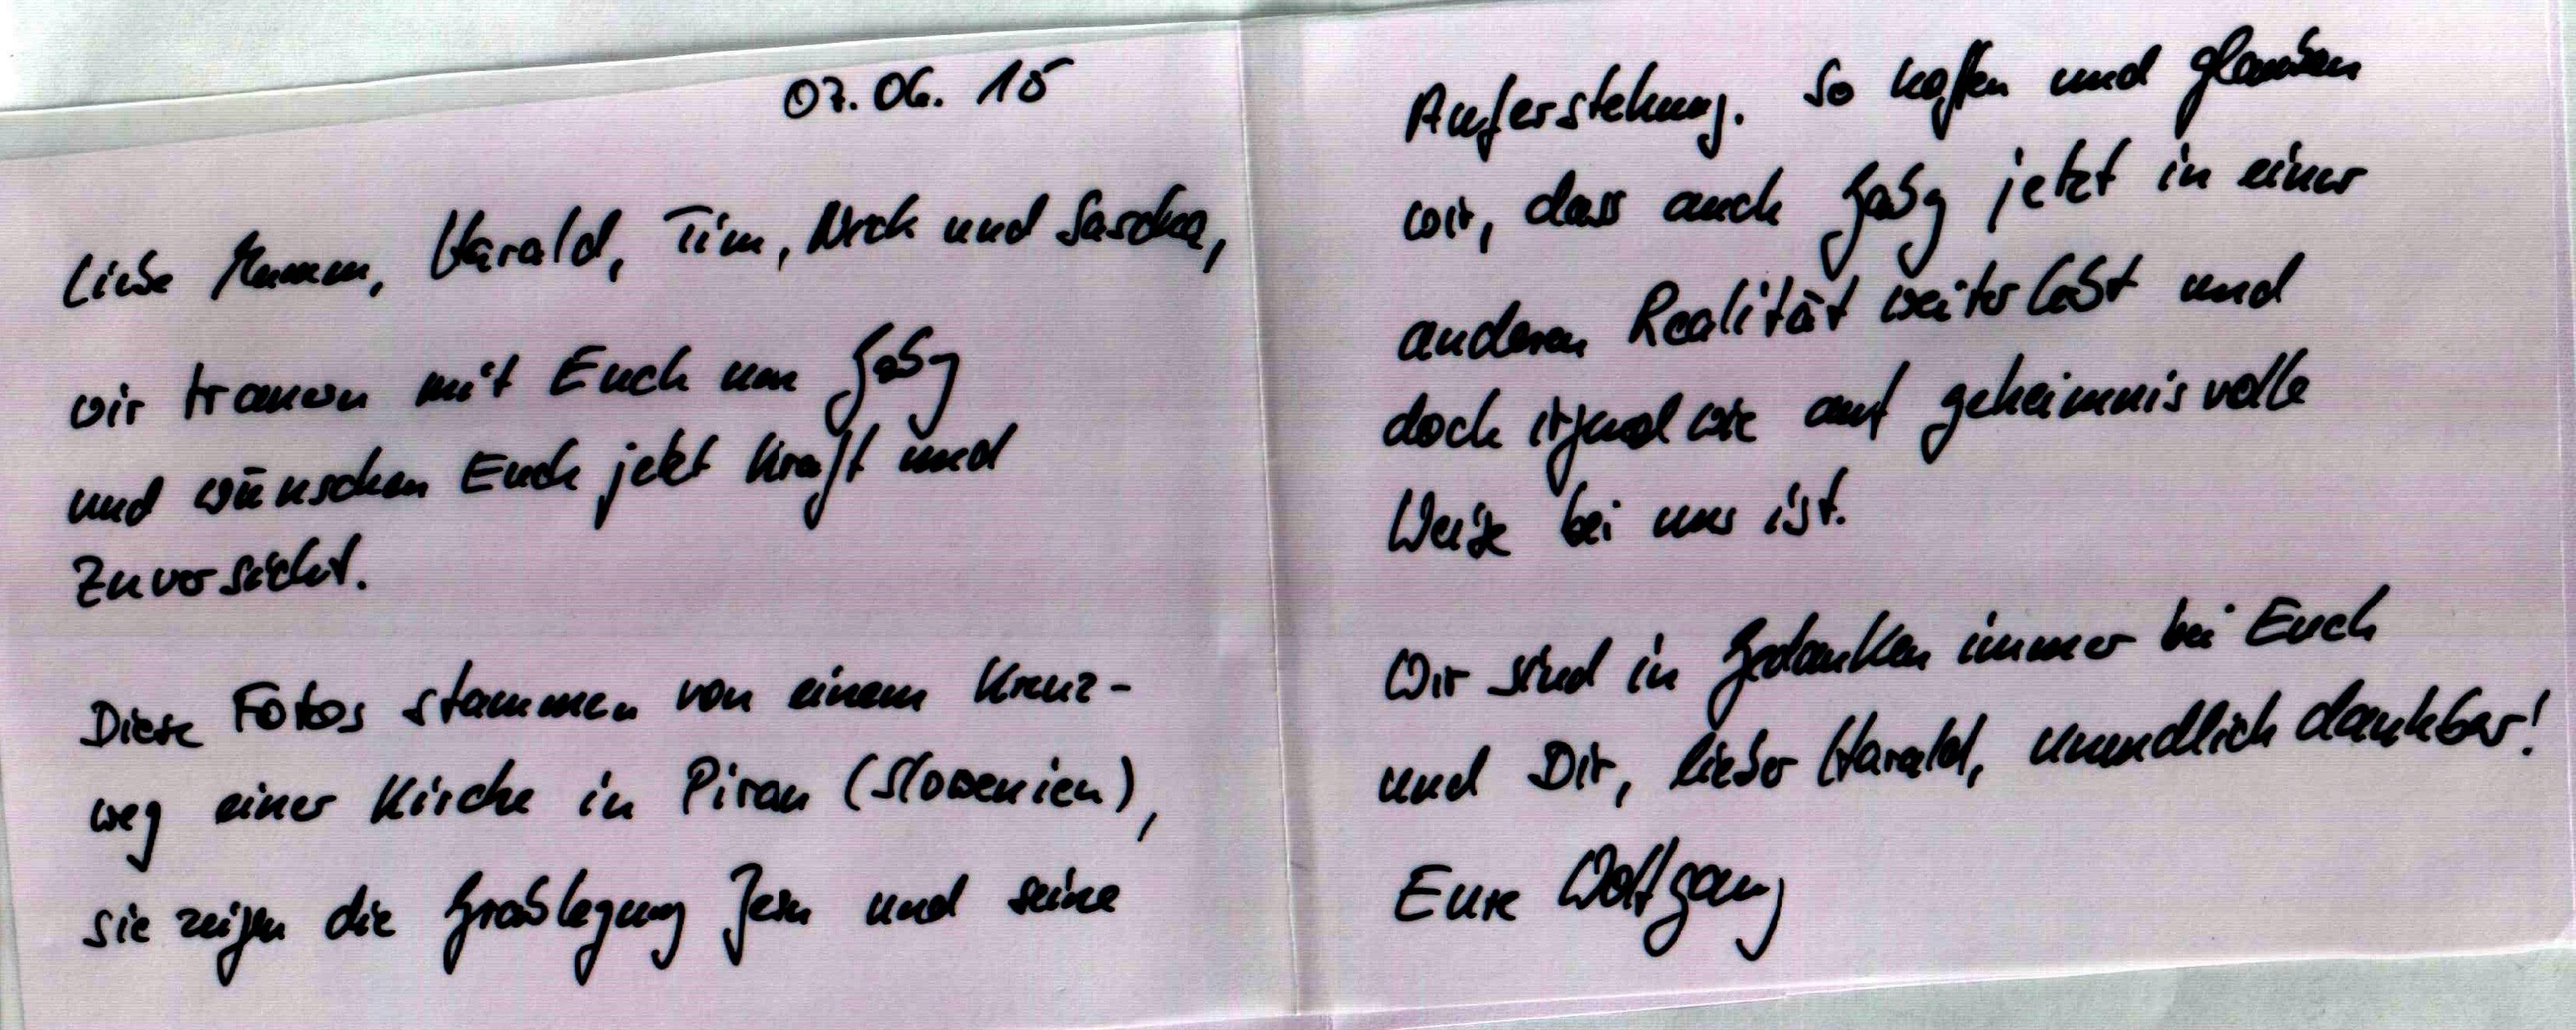 07.06.15
Liebe Mamm, Harald, Tim, Nick und Sascha,
wir trauern mit Euch um Gaby
und wünschen Euch jetzt Kraft und
Zuversicht.
Diese Fotos stammen von einem Kreuz-
weg einer Kirche in Piran (Slowenien),
sie zeigen die Grablegung Jesu und seine
Auferstehung. So hoffen und glauben
wir, dass auch Gaby jetzt in einer
anderen Realität weiterlebt und
doch irgendwie auf geheimnisvolle
Weise bei uns ist.
Wir sind in Gedanken immer bei Euch
und Dir, lieber Harald, unendlich dankbar!
Eure Wolfgang